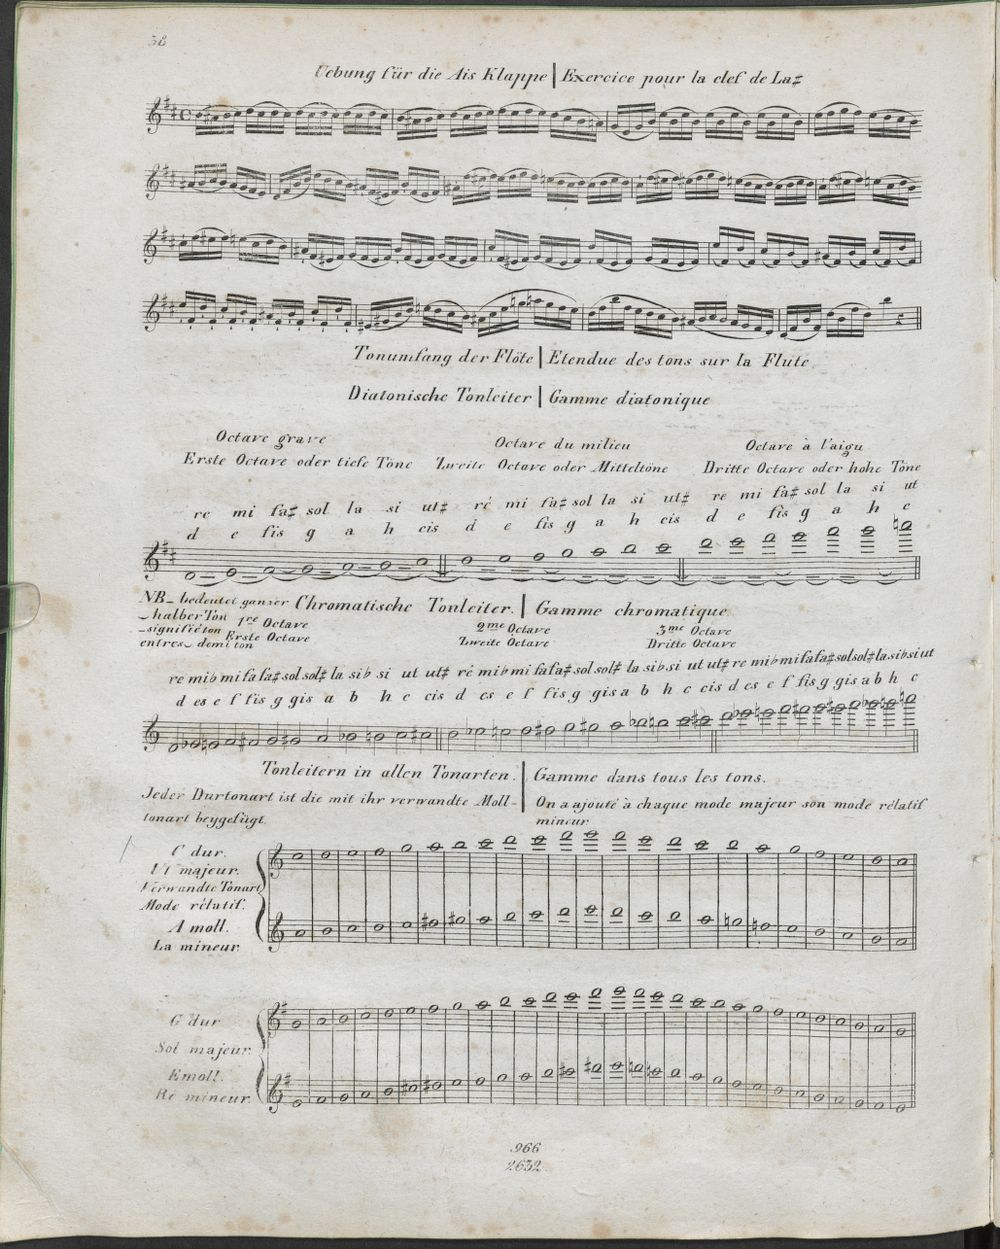 38
Uebung für die Ais Klappe | Exercice pour la clef de La♯
Tonumfang der Flöte | Etendue des tons sur la Flute
Diatonische Tonleiter | Gamme diatonique
Octave grave Octave du milieu Octave à l'aigu
Erste Octave oder tiefe Töne Zweite Octave oder Mitteltöne Dritte Octave oder hohe Töne
re mi fa♯ sol la si ut♯ ré mi fa♯ sol la si ut♯ re mi fa♯ sol la si ut
d e fis g a h cis d e fis g a h cis d e fis g a h c
NB_ bedeutet ganzer Chromatische Tonleiter. | Gamme chromatique.
halber Ton 1re Octave 2me Octave 3me Octave
_signifie ton Erste Octave Zweite Octave Dritte Octave
entres demi ton
re mi♭ mi fa fa♯ sol sol♯ la si♭ si ut ut♯ ré mi♭ mi fa fa♯ sol sol♯ la si♭ si ut ut♯ re mi♭ mi fa fa♯ sol sol♯ la si♭ si ut
d es e f fis g gis a b h c cis d es e f fis g gis a b h c cis d es e f fis g gis a b h c
Tonleitern in allen Tonarten. | Gamme dans tous les tons.
Jeder Durtonart ist die mit ihr verwandte Moll-
tonart beygefügt.
On a ajouté à chaque mode majeur son mode rélatif
mineur.
C dur.
Ut majeur.
Verwandte Tonart
Mode rélatif.
A moll.
La mineur.
G dur
Sol majeur.
E moll.
Ré mineur.
966
2632